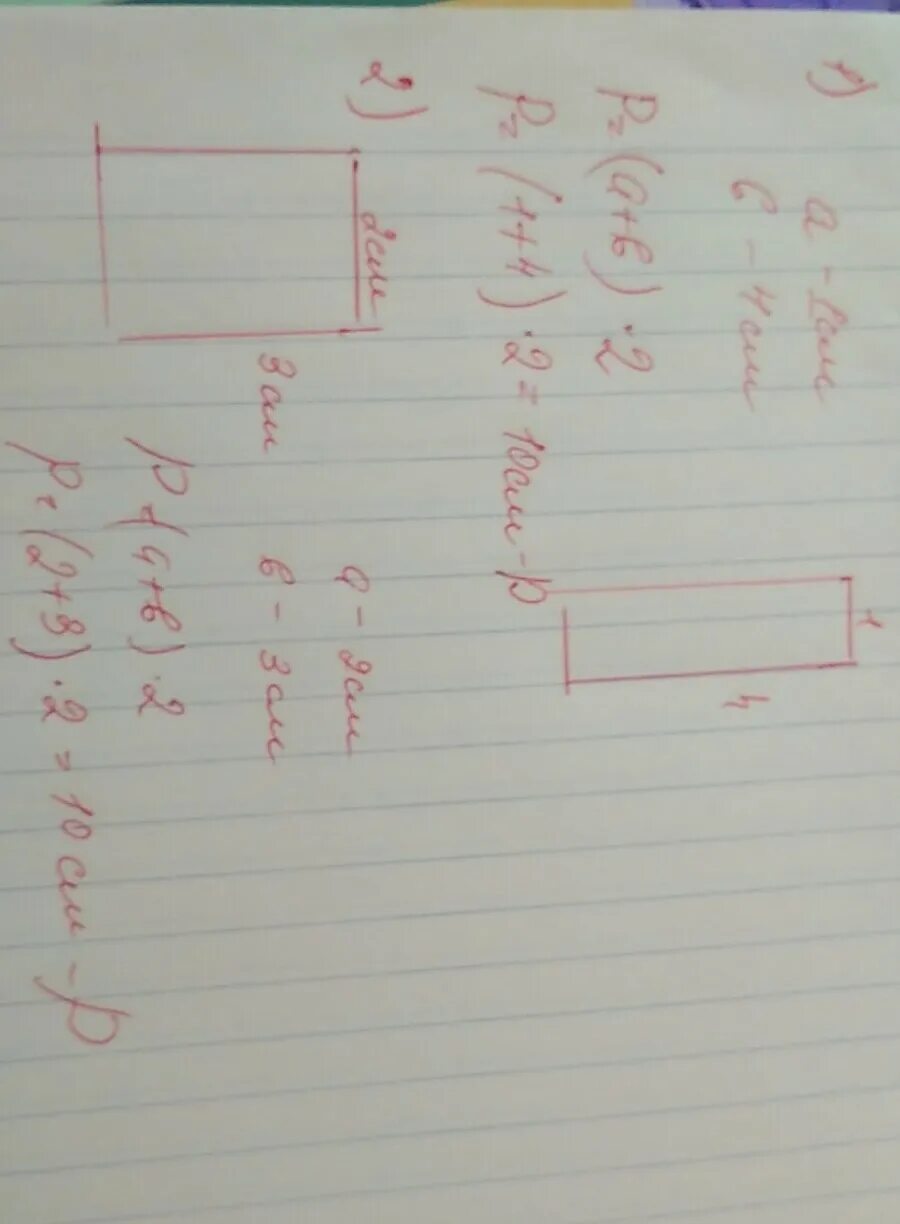 1)
а - 1см
в - 4см
1
4
P = (а+в) · 2
P = (1+4) · 2 = 10см - p
2)
2см
3 см
а - 2см
в - 3см
P = (а+в) · 2
P = (2+3) · 2 = 10 см - p